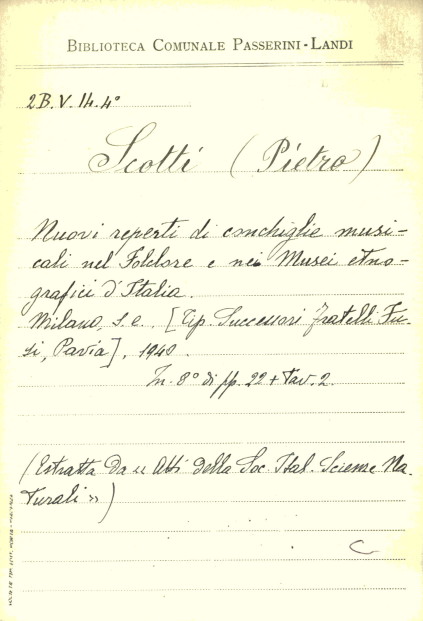 BIBLIOTECA COMUNALE PASSERINI-LANDI
2B.V.14.4°
Scotti (Pietro)
Nuovi reperti di conchiglie musi-
cali nel Folclore e nei Musei etno-
grafici d'Italia.
Milano, s.e. [Tip. Successori Fratelli Fu-
si, Pavia], 1940.
In-8° di pp. 22 + Tav. 2.
(Estratta da « Atti della Soc. Ital. Scienze Na-
turali »)
C